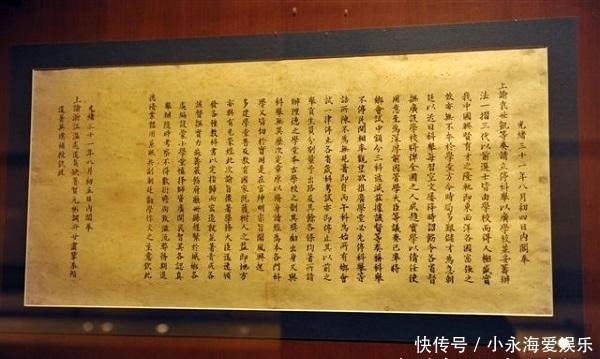 光緒三十一年八月初四日內閣奉
上諭袁世凱等奏請立停科舉以廣學校並妥籌辦
法一摺三代以前選士皆由學校而得人極盛實
我中國興賢育才之隆軌即東西洋各國富強之
效亦無不本於學堂方今時局多艱儲才為急朝
廷以近日科舉每習空文屢降明詔飭令各省督
撫廣設學堂將俾全國之人咸趨實學以備任使
用意至為深厚前因管學大臣等議奏已準將
鄉會試中額分三科遞減茲據該督等奏稱科舉
不停民間相率觀望欲推廣學堂必先停科舉等
語所陳不為無見著即自丙午科為始所有鄉會
試一律停止各省歲科考試亦即停止其以前之
舉貢生員分別量予出路及其餘各條均著照所請
辦理總之學堂本古學校之制其獎勵出身又與
科舉無異歷次定章原以修身讀經為本各門科
學又皆切於實用是在官紳申明宗旨聞風興起
多建學堂普及教育國家既獲樹人之益即地方
亦與有光榮經此次諭旨後著學務大臣迅速頒
發各種教科書以定指歸而宏造就並著責成各
該督撫實力通籌嚴飭府廳州縣趕緊於城鄉各
處遍設蒙小學堂慎擇師資廣開民智其各認真
舉辦隨時考察不得敷衍瞻徇致滋流弊務期進
德修業體用兼賅共副朝廷勸學作人之至意欽此
光緒三十一年八月初五日內閣奉
上諭浙江溫處道員缺著賀元彬調補
遺著吳璞補授欽此
快传号／小永海爱娱乐